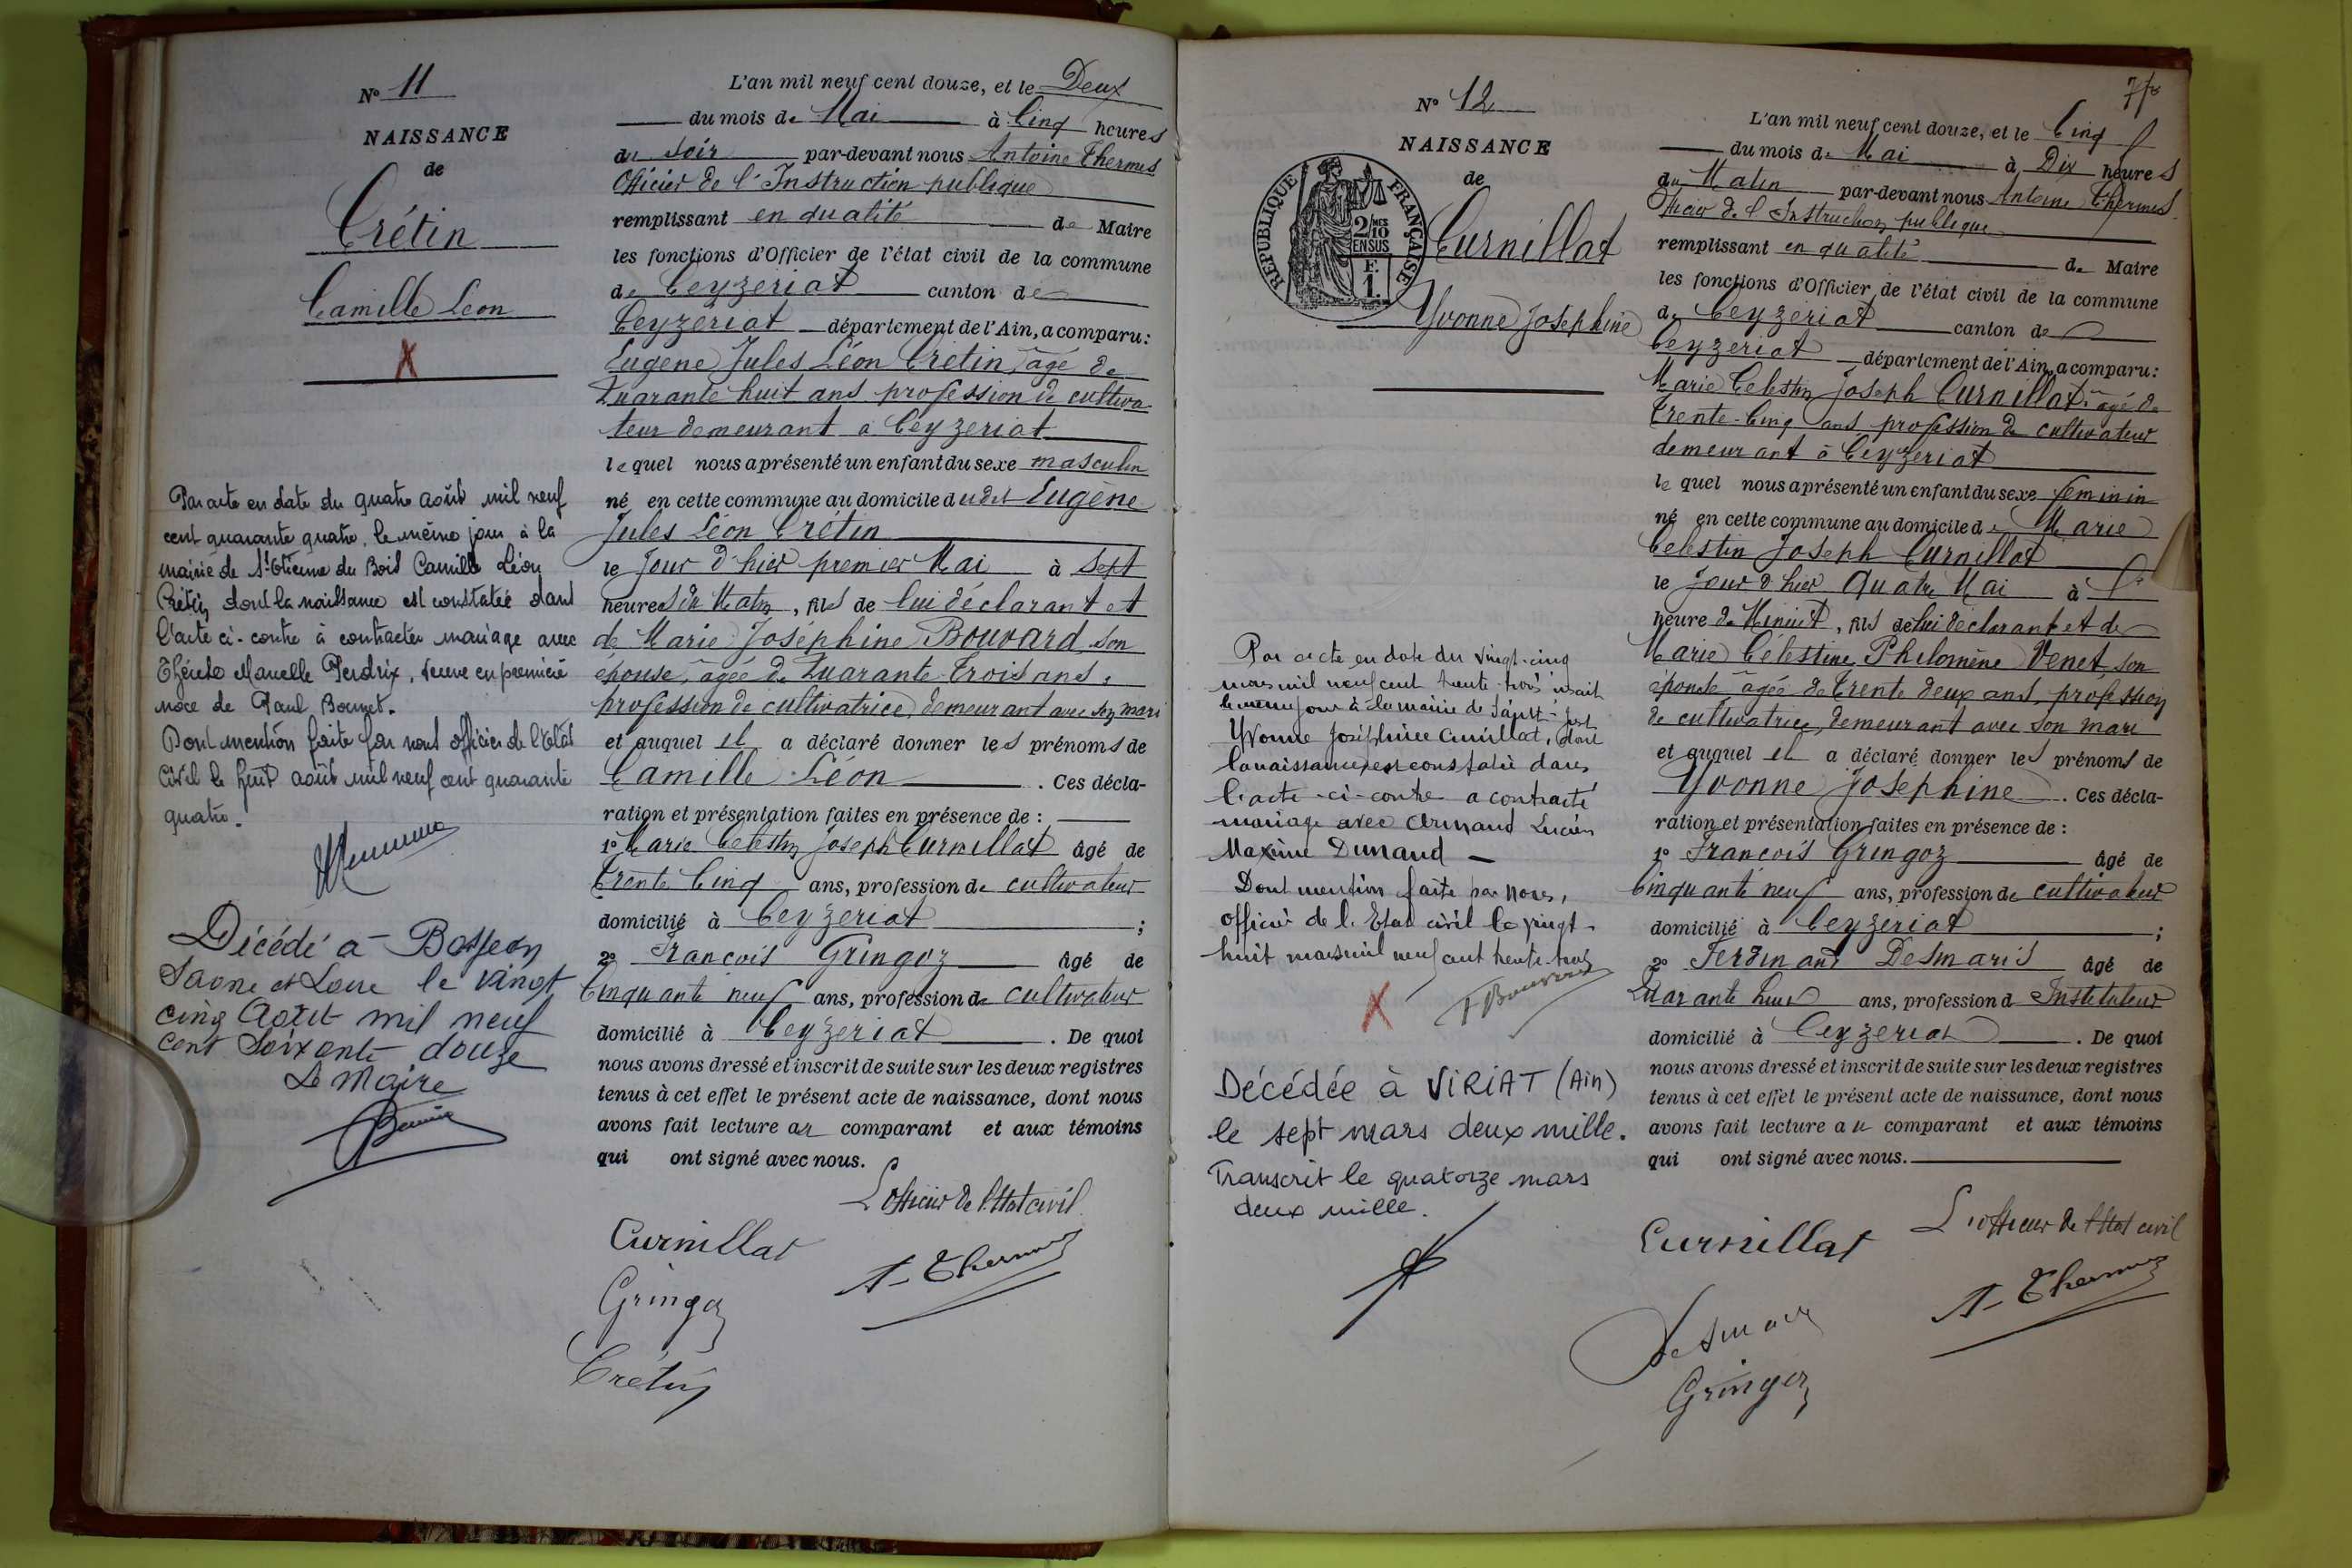 N° 11
NAISSANCE
de
Crétin
Camille Léon
X
Par acte en date du quatre août mil neuf
cent quarante quatre, le même jour à la
mairie de St Etienne du Bois Camille Léon
Crétin dont la naissance est constatée dans
l'acte ci-contre à contracter mariage avec
Marcelle Perdrix, veuve en première
noce de Paul Bonnet.
Dont mention faite par nous officier de l'Etat
Civil le huit août mil neuf cent quarante
quatre.
Décédé à
Saone et Loire le vingt
cinq Août mil neuf
cent soixante douze
Le Maire
L'an mil neuf cent douze, et le Deux
du mois de Mai à Cinq heures
du soir par-devant nous Antoine Thermes
Officier de l'Instruction publique
remplissant en qualité de Maire
les fonctions d'Officier de l'état civil de la commune
de Ceyzeriat canton de
Ceyzeriat département de l'Ain, a comparu:
Eugene Jules Léon Crétin âgé de
Quarante huit ans profession de cultiva
teur demeurant à Ceyzeriat
lequel nous a présenté un enfant du sexe masculin
né en cette commune au domicile du dit Eugène
Jules Léon Crétin
le Jour d'hier premier Mai à sept
heures du Matin, fils de lui déclarant et
de Marie Joséphine Bouvard son
épouse, âgée de Quarante trois ans,
profession de cultivatrice, demeurant avec son mari
et auquel il a déclaré donner les prénoms de
Camille Léon. Ces décla-
ration et présentation faites en présence de :
1° Marie Celestin Joseph Curnillat âgé de
trente Cinq ans, profession de cultivateur
domicilié à Ceyzeriat ;
2° Francois Gringoz âgé de
Cinquante neuf ans, profession de cultivateur
domicilié à Ceyzeriat. De quoi
nous avons dressé et inscrit de suite sur les deux registres
tenus à cet effet le présent acte de naissance, dont nous
avons fait lecture au comparant et aux témoins
qui ont signé avec nous.
L'officier de l'Etat civil
Curnillat
A. Thermes
Gringoz
Crétin
7
N° 12
NAISSANCE
de
REPUBLIQUE FRANÇAISE
2/10 MES
EN SUS
F.
1.
Curnillat
Yvonne Josephine
Par acte en date du vingt-cinq
mars mil neuf cent trente trois
le même jour à la mairie de Saint-Just
Yvonne Joséphine Curnillat, dont
la naissance est constatée dans
l'acte ci-contre a contracté
mariage avec Armand Lucien
Maxime Dunand
Dont mention faite par Nous,
officier de l'Etat civil le vingt-
huit mars mil neuf cent trente trois
X
Décédée à VIRIAT (Ain)
le sept mars deux mille.
Transcrit le quatorze mars
deux mille.
L'an mil neuf cent douze, et le Cinq
du mois de Mai à Dix heures
du Matin par-devant nous Antoine Thermes
Officier de l'Instruction publique
remplissant en qualité de Maire
les fonctions d'Officier de l'état civil de la commune
de Ceyzeriat canton de
Ceyzeriat département de l'Ain, a comparu:
Marie Celestin Joseph Curnillat âgé de
trente-Cinq ans profession de cultivateur
demeurant à Ceyzeriat
lequel nous a présenté un enfant du sexe feminin
né en cette commune au domicile de Marie
Celestin Joseph Curnillat
le Jour d'hier Quatre Mai à
heure de Minuit, fils de lui déclarant et de
Marie Célestine Philomène Venet son
épouse, âgée de trente deux ans, profession
de cultivatrice, demeurant avec son mari
et auquel il a déclaré donner les prénoms de
Yvonne Josephine. Ces décla-
ration et présentation faites en présence de :
1° Francois Gringoz âgé de
Cinquante neuf ans, profession de cultivateur
domicilié à Ceyzeriat ;
2° Ferdinand Desmaris âgé de
Quarante huit ans, profession d Instituteur
domicilié à Ceyzeriat. De quoi
nous avons dressé et inscrit de suite sur les deux registres
tenus à cet effet le présent acte de naissance, dont nous
avons fait lecture au comparant et aux témoins
qui ont signé avec nous.
L'officier de l'Etat civil
Curnillat
A. Thermes
Desmaris
Gringoz